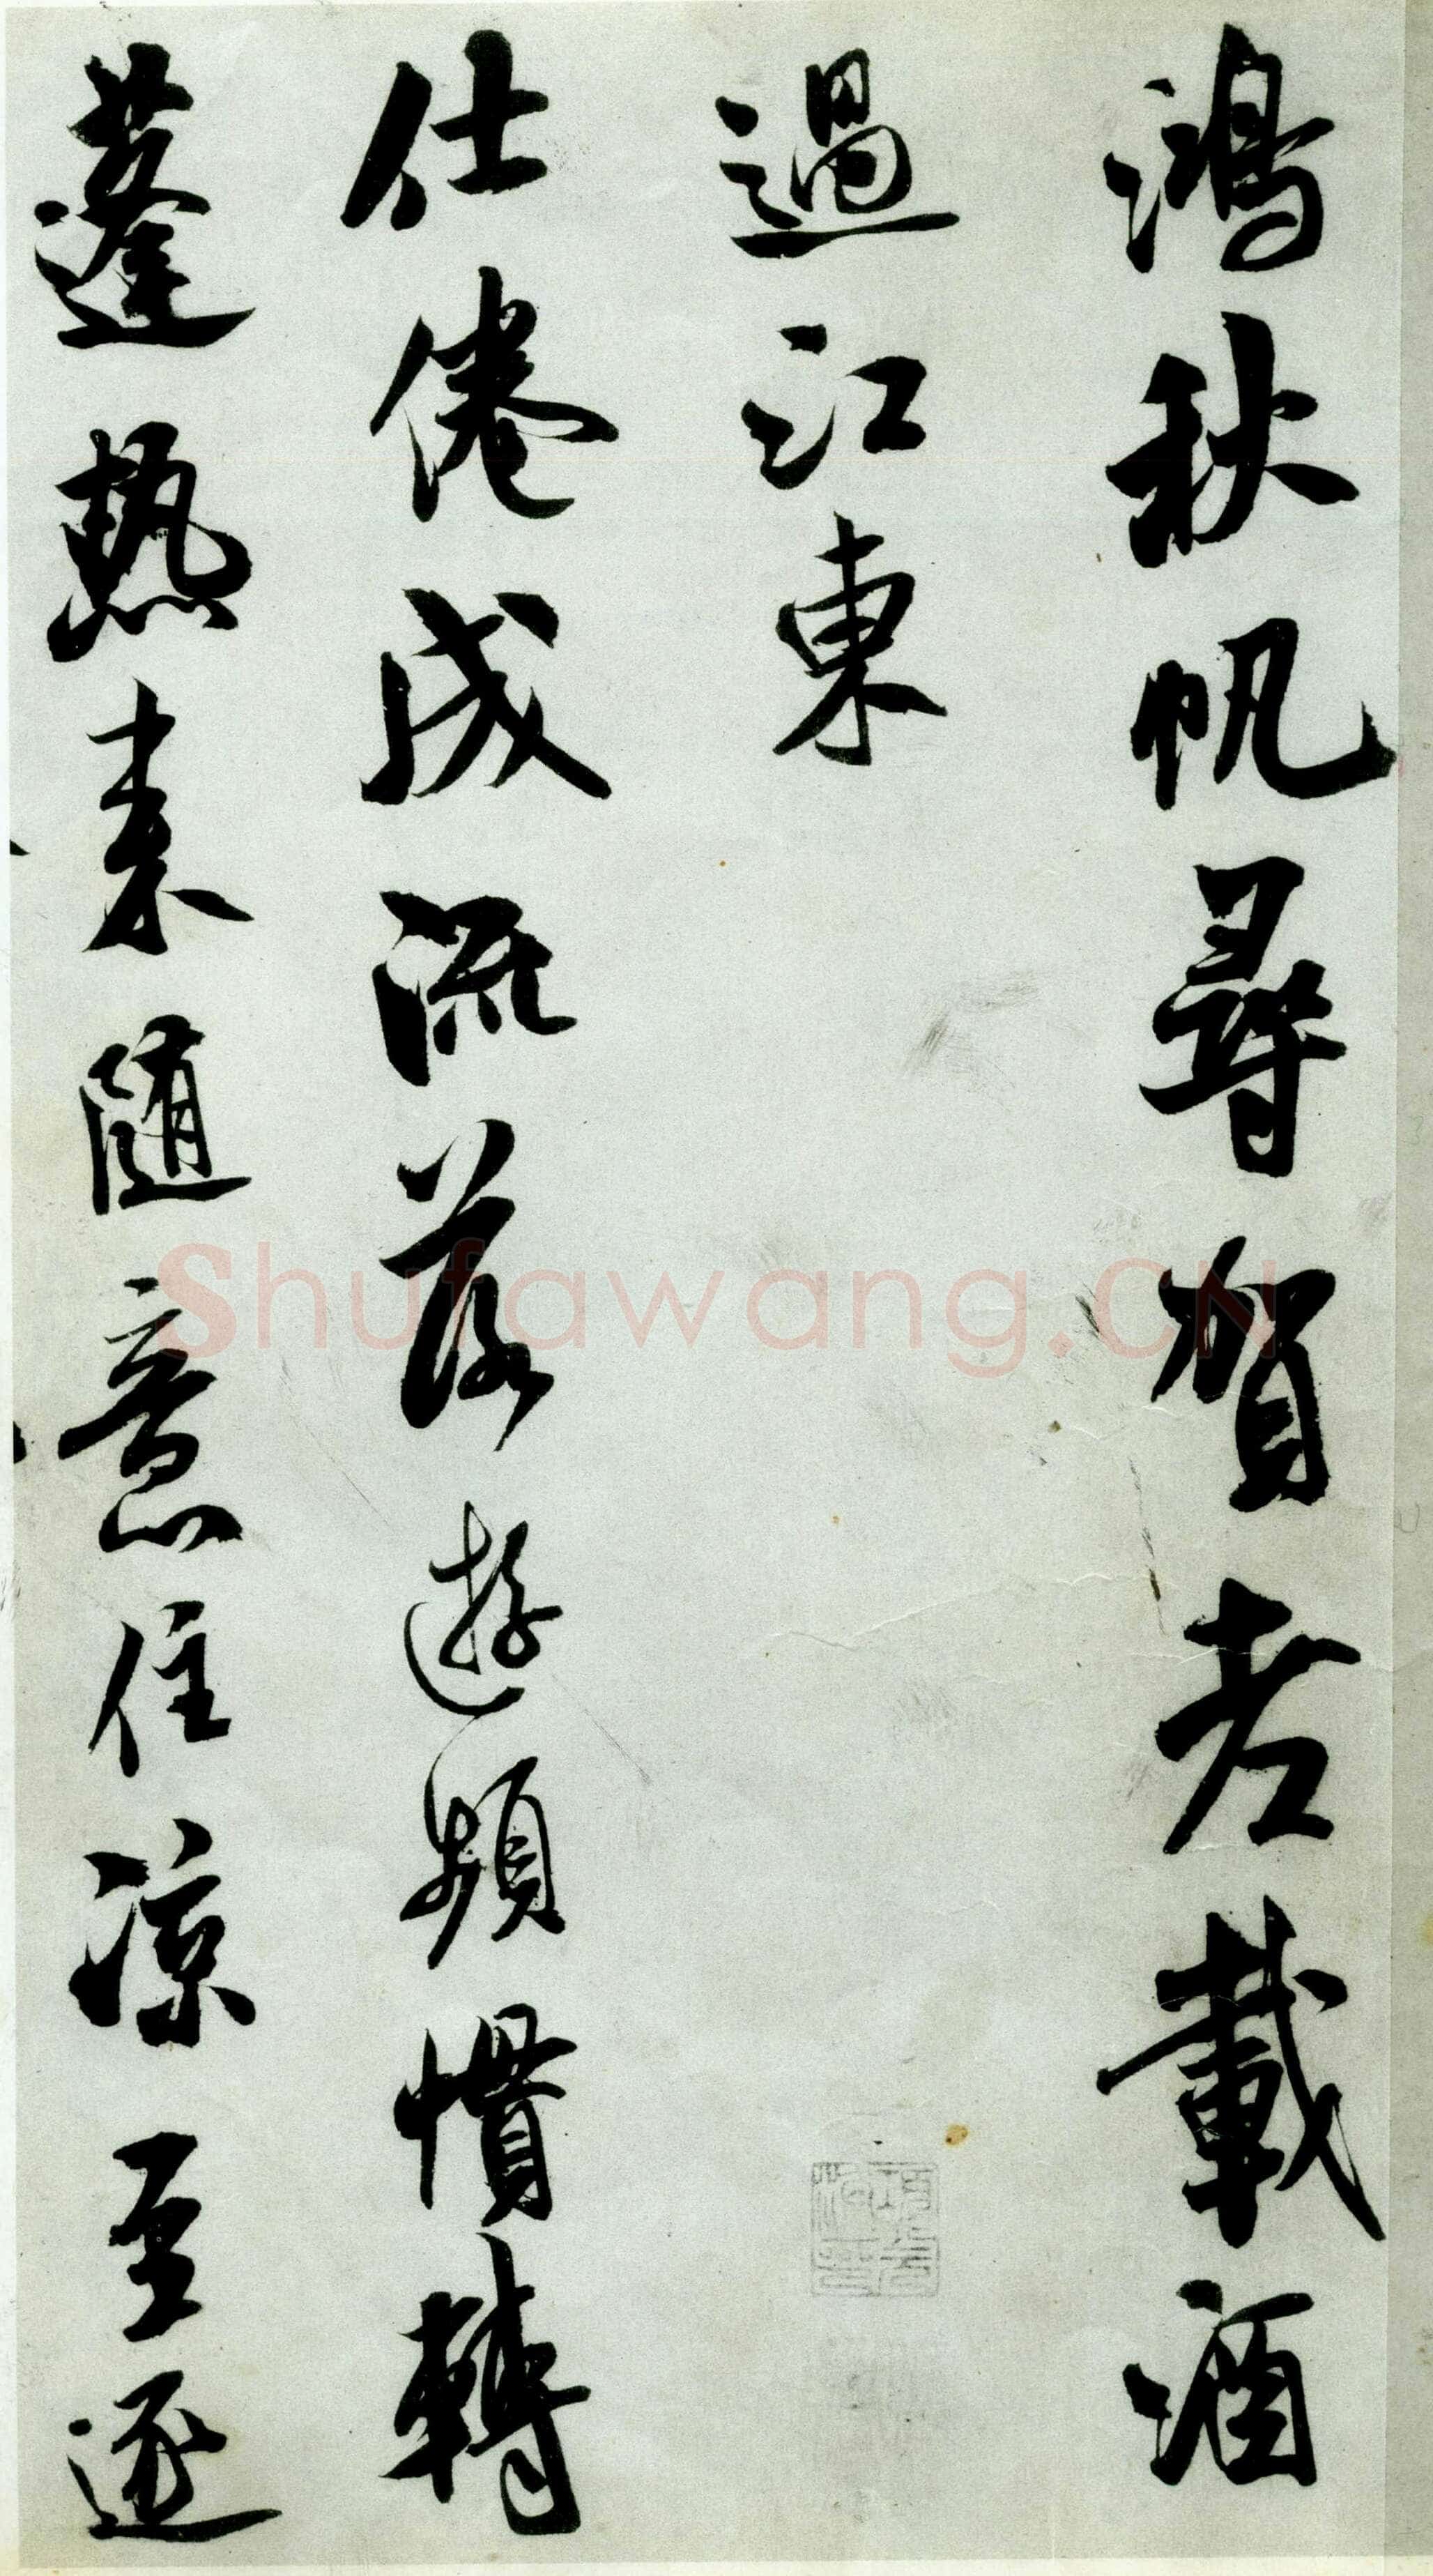 鴻秋帆尋賀老載酒
過江東
仕倦成流落遊頻慣轉
蓬熱來隨意住涼至逐
Shufawang.CN